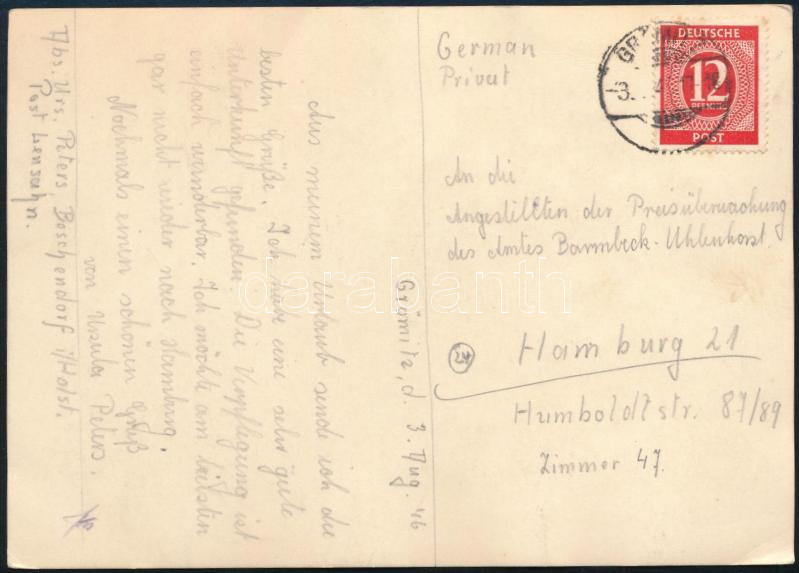 Abs. Urs. Peters, Beschendorf i/Holst.
Post Lensahn.
Grömitz, d. 3. Aug. 46
Aus meinem Urlaub sende ich die
besten Grüße. Ich habe eine sehr gute
Unterkunft gefunden. Die Verpflegung ist
einfach wunderbar. Ich möchte am liebsten
gar nicht wieder nach Hamburg.
Nochmals einen schönen Gruß
von Ursula Peters.
German
Privat
DEUTSCHE
12
PFENNIG
POST
An die
Angestellten der Preisüberwachung
des Amtes Barmbeck-Uhlenhorst.
24
Hamburg 21
Humboldtstr. 87/89
Zimmer 47.
darabanth